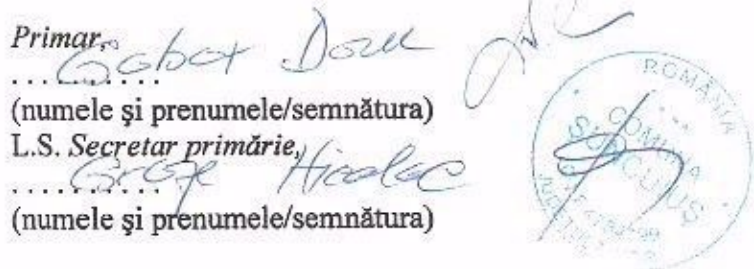 Primar,
Gabor Dorel
..........
(numele şi prenumele/semnătura)
L.S. Secretar primărie,
Groze Nicolae
..........
(numele şi prenumele/semnătura)
ROMÂNIA
COMUNA
ŞUNCUIUŞ